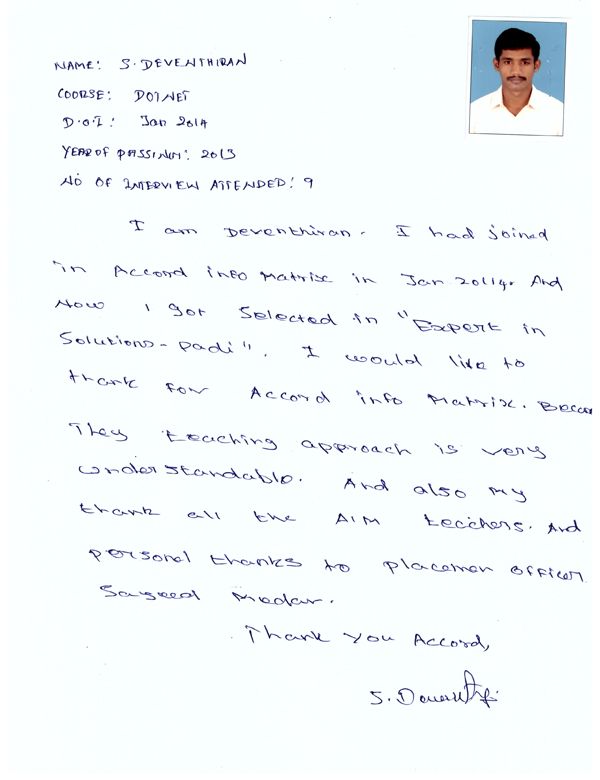 NAME: S. DEVENTHIRAN
COURSE: DOTNET
D.O.I: Jan 2014
YEAR OF PASSING: 2013
NO OF INTERVIEW ATTENDED: 9
I am Deventhiran. I had joined
in Accord info Matrix in Jan 2014. And
Now I got Selected in "Expert in
Solutions-padi". I would like to
thank for Accord info Matrix. Becau
They teaching approach is very
understandable. And also my
thank all the AIM teachers. And
personal thanks to placemen officer
Sayeed Medar.
Thank you Accord,
S.